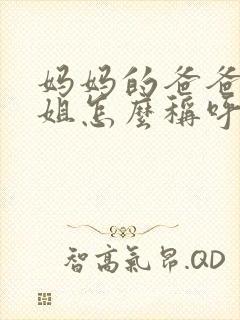 妈妈的爸爸
姐怎麼稱呼
智高氣昂.QD